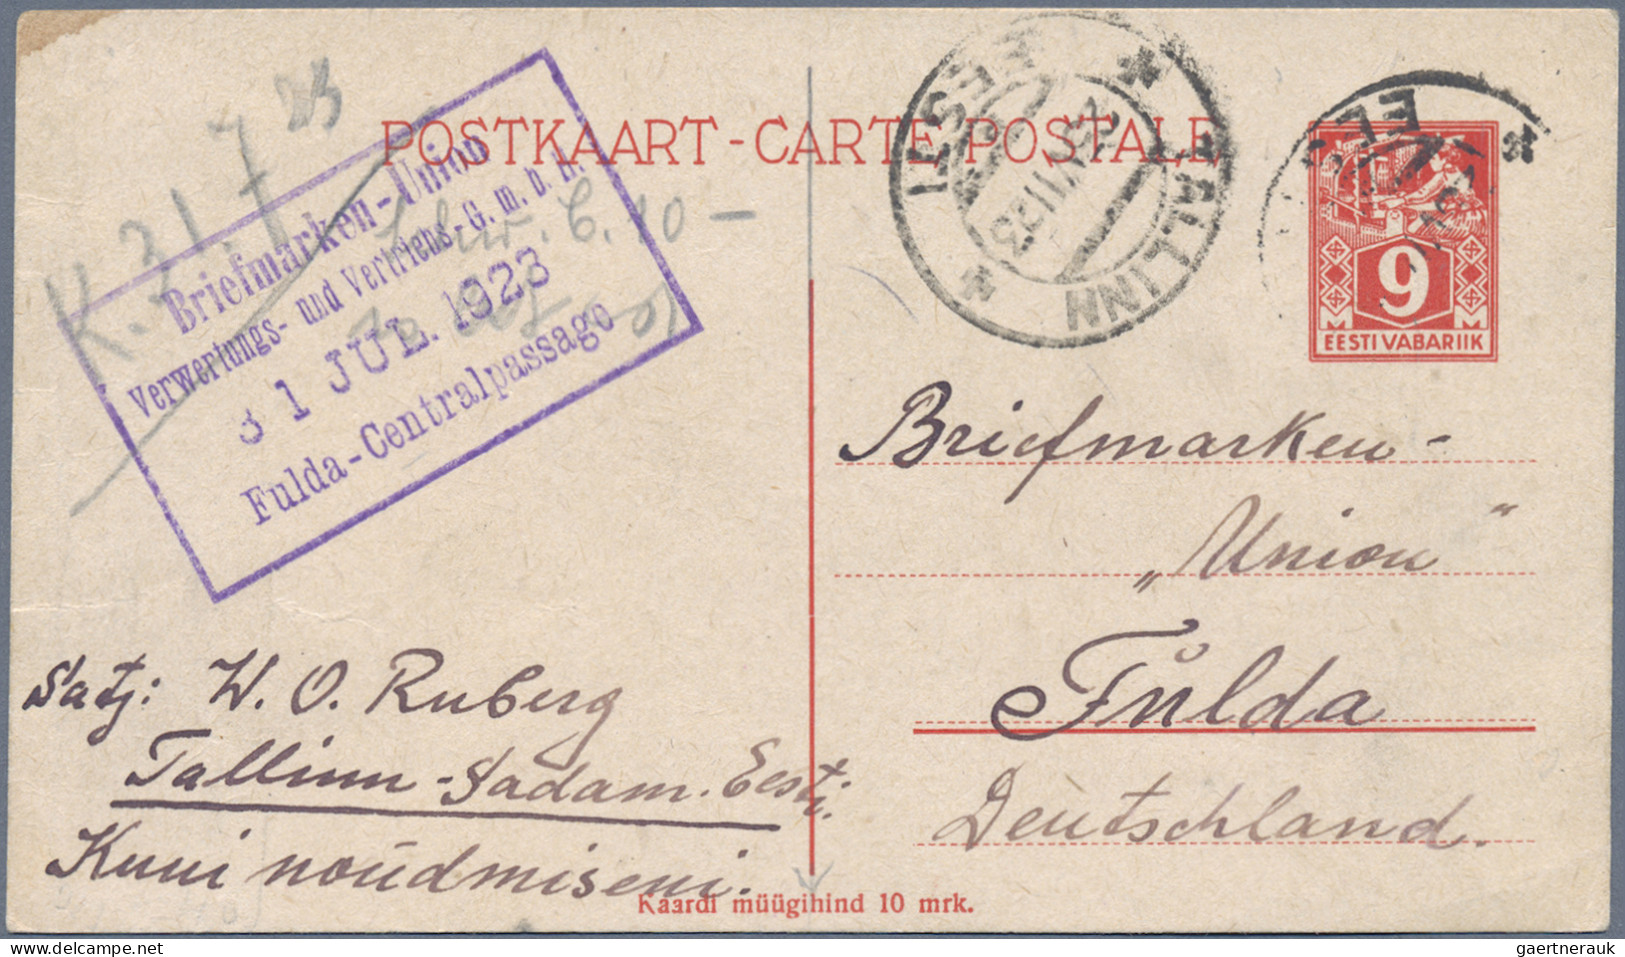 POSTKAART - CARTE POSTALE
K. 31. 7. 23
Briefmarken-Union
Verwertungs- und Vertriebs-G. m. b. H.
31 JUL. 1923
Fulda-Centralpassage
10 -
TALLINN
EESTI
25 VII 23
EES
9
EESTI VABARIIK
Briefmarken-
„Union“
Fŭlda
Deutschland.
Satj: W. O. Ruberg
Tallinn-Sadam. Eesti.
Kuni nõudmiseni.
Kaardi müügihind 10 mrk.
gaertnerauk